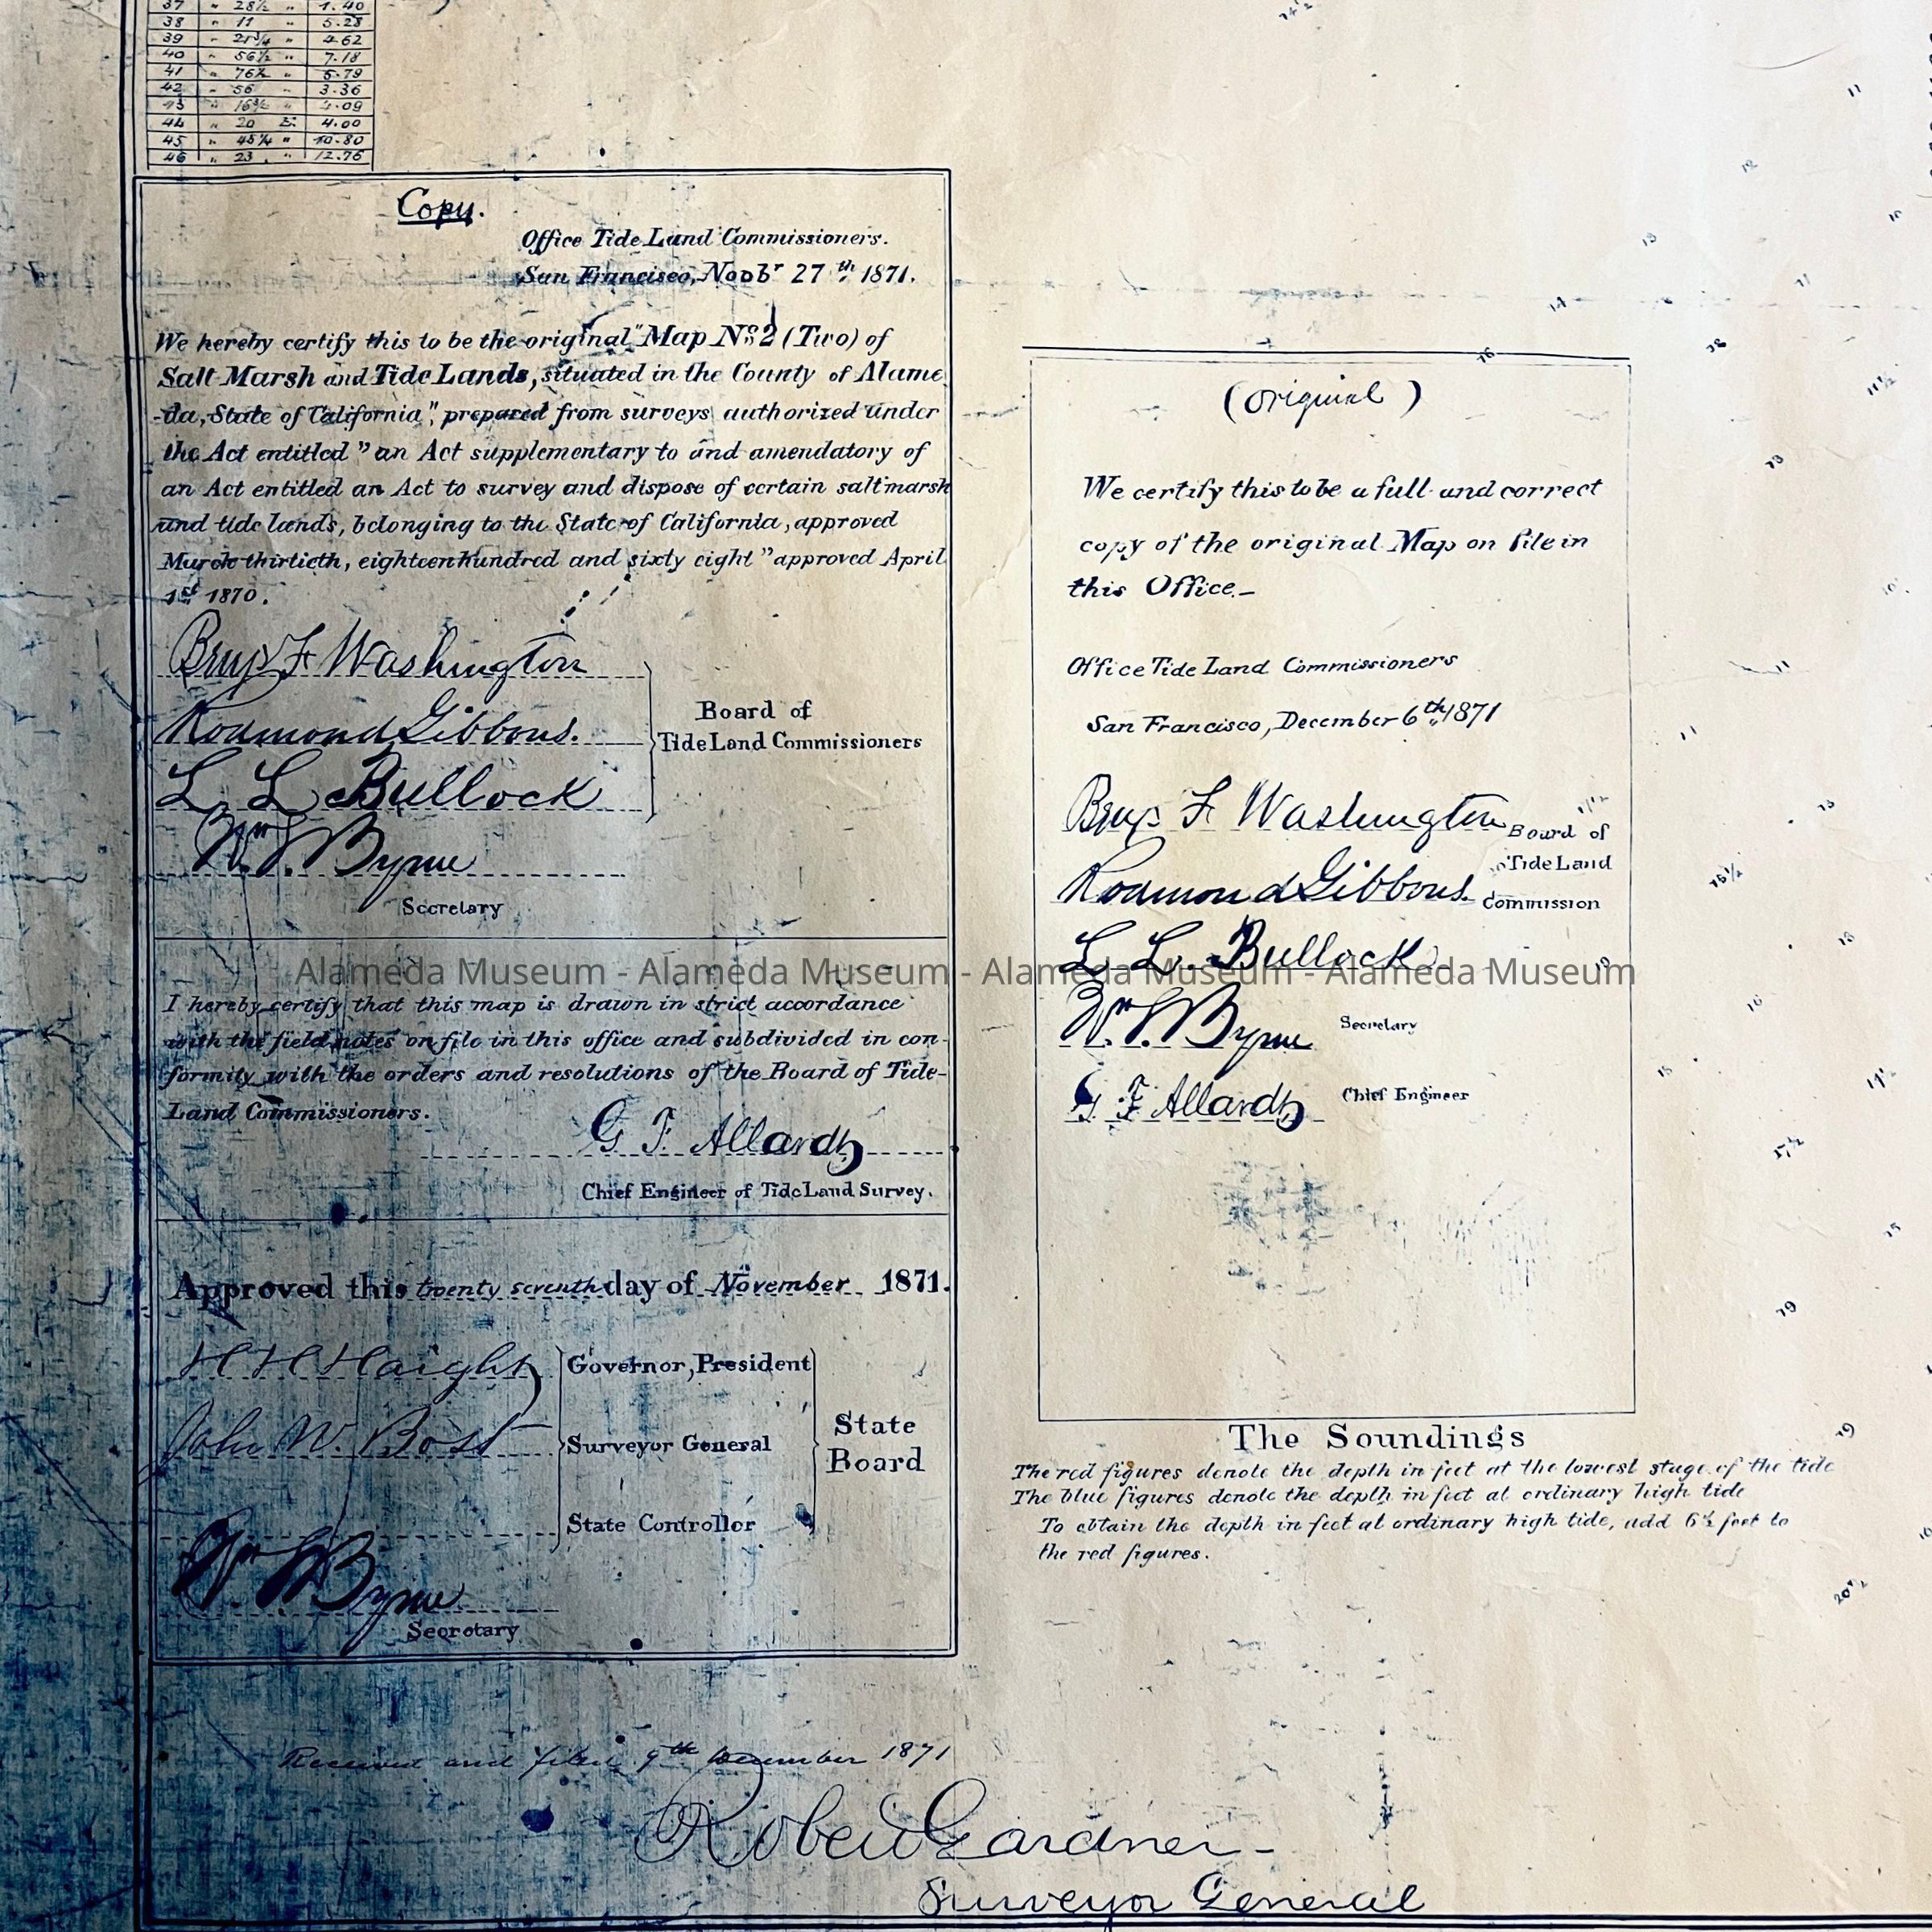 37 " 28½ " 1.40
38 " 11 " 5.28
39 " 21¾ " 4.62
40 " 56½ " 7.18
41 " 76½ " 5.79
42 " 56 " 3.36
43 " 16¾ " 4.09
44 " 20 E. 4.00
45 " 45¼ " 10.80
46 " 23 " 12.76
Copy.
Office Tide Land Commissioners.
San Francisco, Novbr 27th 1871.
We hereby certify this to be the original "Map No 2 (Two) of
Salt Marsh and Tide Lands, situated in the County of Alame
-da, State of California," prepared from surveys authorized under
the Act entitled "an Act supplementary to and amendatory of
an Act entitled an Act to survey and dispose of certain salt marsh
and tide lands, belonging to the State of California, approved
March thirtieth, eighteen hundred and sixty eight" approved April
1st 1870.
Benj. F Washington
Rodmond Gibbons.
L. L. Bullock
Board of
Tide Land Commissioners
Wm. S. Byrne
Secretary
I hereby certify that this map is drawn in strict accordance
with the field notes on file in this office and subdivided in con-
formity with the orders and resolutions of the Board of Tide-
Land Commissioners.
G F. Allardt
Chief Engineer of Tide Land Survey.
Approved this twenty seventh day of November 1871.
H H Haight Governor, President
John W. Bost Surveyor General
State Controller
State
Board
Wm S Byrne
Secretary
Received and filed 9th December 1871
Robert Gardner
Surveyor General
(Original)
We certify this to be a full and correct
copy of the original Map on file in
this Office.-
Office Tide Land Commissioners
San Francisco, December 6th, 1871
Benj. F Washington
Rodmond Gibbons.
L. L. Bullock
Board of
Tide Land
Commission
Wm. S. Byrne Secretary
G. F Allardt Chief Engineer
The Soundings
The red figures denote the depth in feet at the lowest stage of the tide
The blue figures denote the depth in feet at ordinary high tide
To obtain the depth in feet at ordinary high tide, add 6½ feet to
the red figures.
Alameda Museum - Alameda Museum - Alameda Museum - Alameda Museum